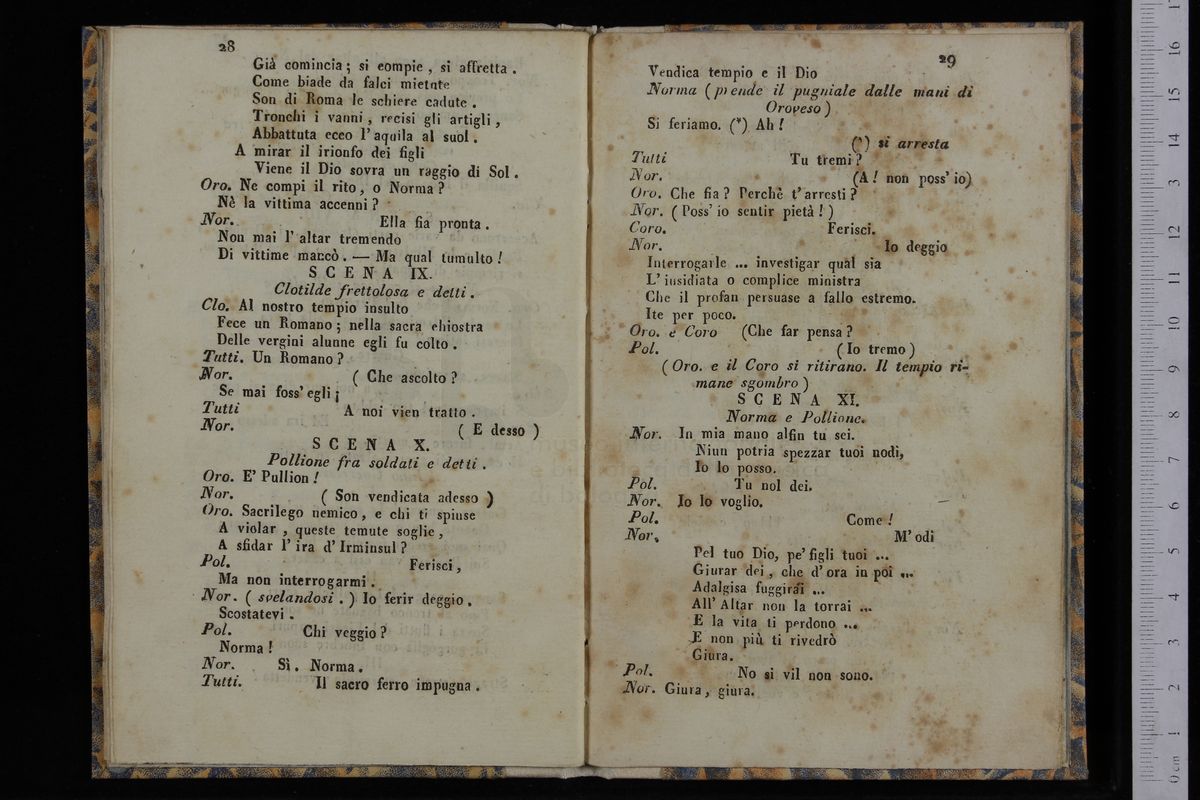 28
Già comincia; si eompie, si affretta.
Come biade da falci mietnte
Son di Roma le schiere cadute.
Tronchi i vanni, recisi gli artigli,
Abbattuta ecco l'aquila al suol.
A mirar il irionfo dei figli
Viene il Dio sovra un raggio di Sol.
Oro. Ne compi il rito, o Norma?
Nè la vittima accenni?
Nor. Ella fia pronta.
Non mai l'altar tremendo
Di vittime mancò. — Ma qual tumulto!
SCENA IX.
Clotilde frettolosa e detti.
Clo. Al nostro tempio insulto
Fece un Romano; nella sacra chiostra
Delle vergini alunne egli fu colto.
Tutti. Un Romano?
Nor. (Che ascolto?
Se mai foss' egli¡
Tutti A noi vien tratto.
Nor. (E desso)
SCENA X.
Pollione fra soldati e detti.
Oro. E' Pullion!
Nor. (Son vendicata adesso)
Oro. Sacrilego nemico, e chi ti spinse
A violar, queste temute soglie,
A sfidar l'ira d'Irminsul?
Pol. Ferisci,
Ma non interrogarmi.
Nor. (svelandosi.) Io ferir deggio.
Scostatevi.
Pol. Chi veggio?
Norma!
Nor. Sì. Norma.
Tutti. Il sacro ferro impugna.
29
Vendica tempio e il Dio
Norma (prende il pugniale dalle mani di
Oroveso)
Si feriamo. (*) Ah!
(*) si arresta
Tutti Tu tremi?
Nor. (A! non poss' io)
Oro. Che fia? Perchè t'arresti?
Nor. (Poss' io sentir pietà!)
Coro. Ferisci.
Nor. Io deggio
Interrogarle ... investigar qual sia
L'insidiata o complice ministra
Che il profan persuase a fallo estremo.
Ite per poco.
Oro. e Coro (Che far pensa?
Pol. (Io tremo)
(Oro. e il Coro si ritirano. Il tempio ri-
mane sgombro)
SCENA XI.
Norma e Pollione.
Nor. In mia mano alfin tu sei.
Niun potria spezzar tuoi nodi,
Io lo posso.
Pol. Tu nol dei.
Nor. Io lo voglio.
Pol. Come!
Nor. M'odi
Pel tuo Dio, pe' figli tuoi ...
Giurar dei, che d'ora in poi ...
Adalgisa fuggirai ...
All' Altar non la torrai ...
E la vita ti perdono ...
E non più ti rivedrò
Giura.
Pol. No si vil non sono.
Nor. Giura, giura.